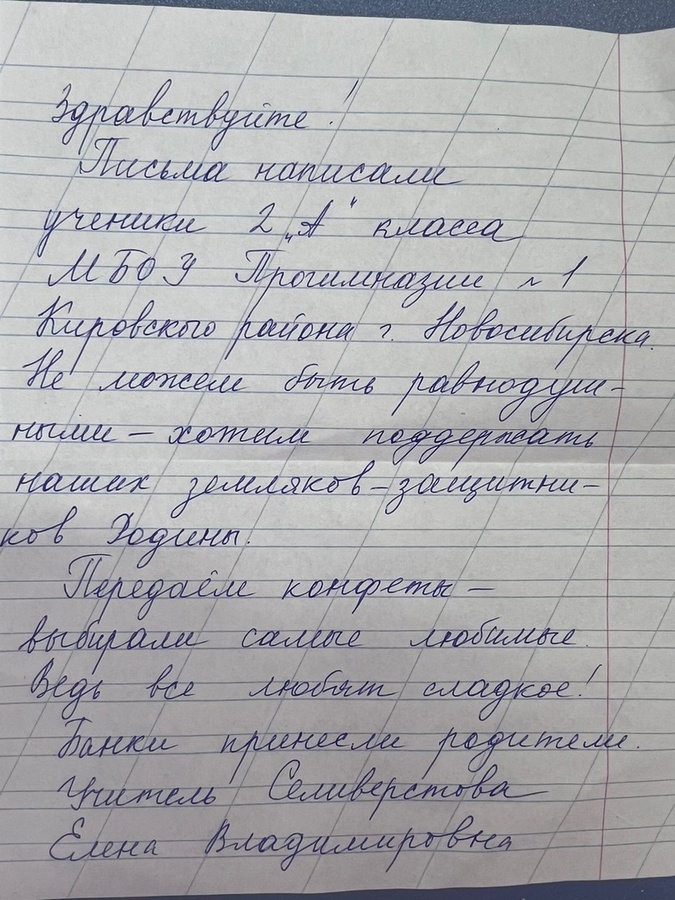 Здравствуйте!
Письма написали
ученики 2 „А" класса
МБОУ Прогимназии ~ 1
Кировского района г. Новосибирска.
Не можем быть равнодуш-
ными – хотим поддержать
наших земляков – защитни-
ков Родины.
Передаём конфеты –
выбирали самые любимые.
Ведь все любят сладкое!
Банки принесли родители.
Учитель Селиверстова
Елена Владимировна